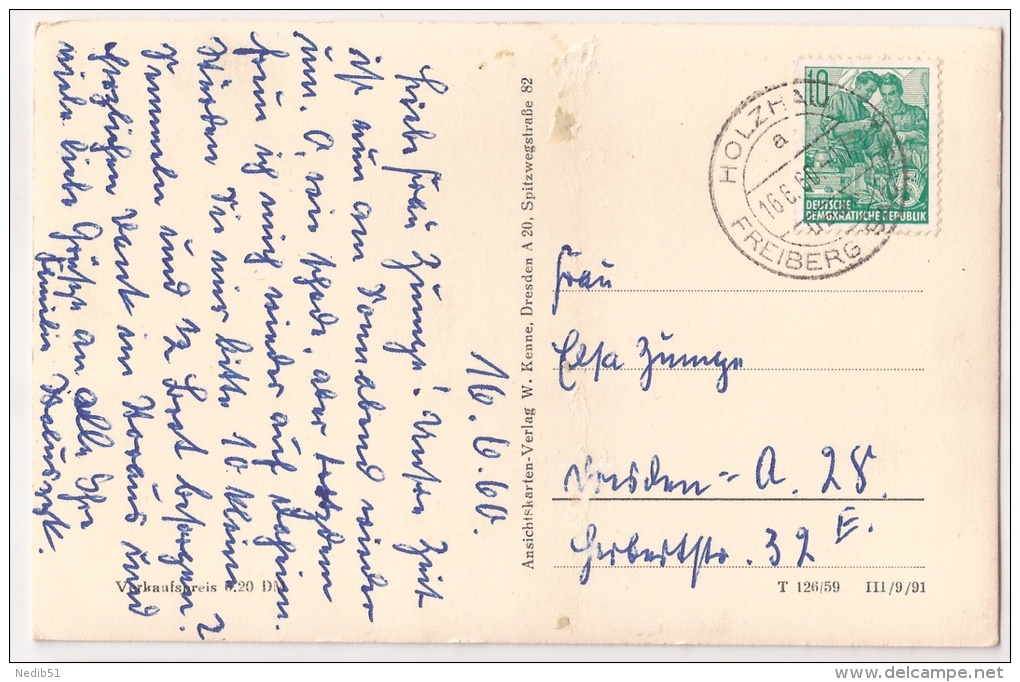 16. 6. 60.
Liebe Frau Zumpe! Unsre Zeit
ist nun am Sonnabend wieder
um. O, wie schade, aber trotzdem
freun ich mich wieder auf daheim.
Würden Sie mir bitte 10 kleine
Semmeln und 1/2 Brot besorgen?
Herzlichen Dank im Voraus und
viele liebe Grüße an alle Ihre
Familie
Verkaufspreis 0.20 DM
Ansichtskarten-Verlag W. Kenne, Dresden A 20, Spitzwegstraße 82
10
DEUTSCHE
DEMOKRATISCHE REPUBLIK
HOLZHA
a
16.6.60
FREIBERG
Frau
Elsa Zumpe
Dresden - A. 28.
Herbertstr. 32 E.
T 126/59 III/9/91
Nedib51
delcampe.net